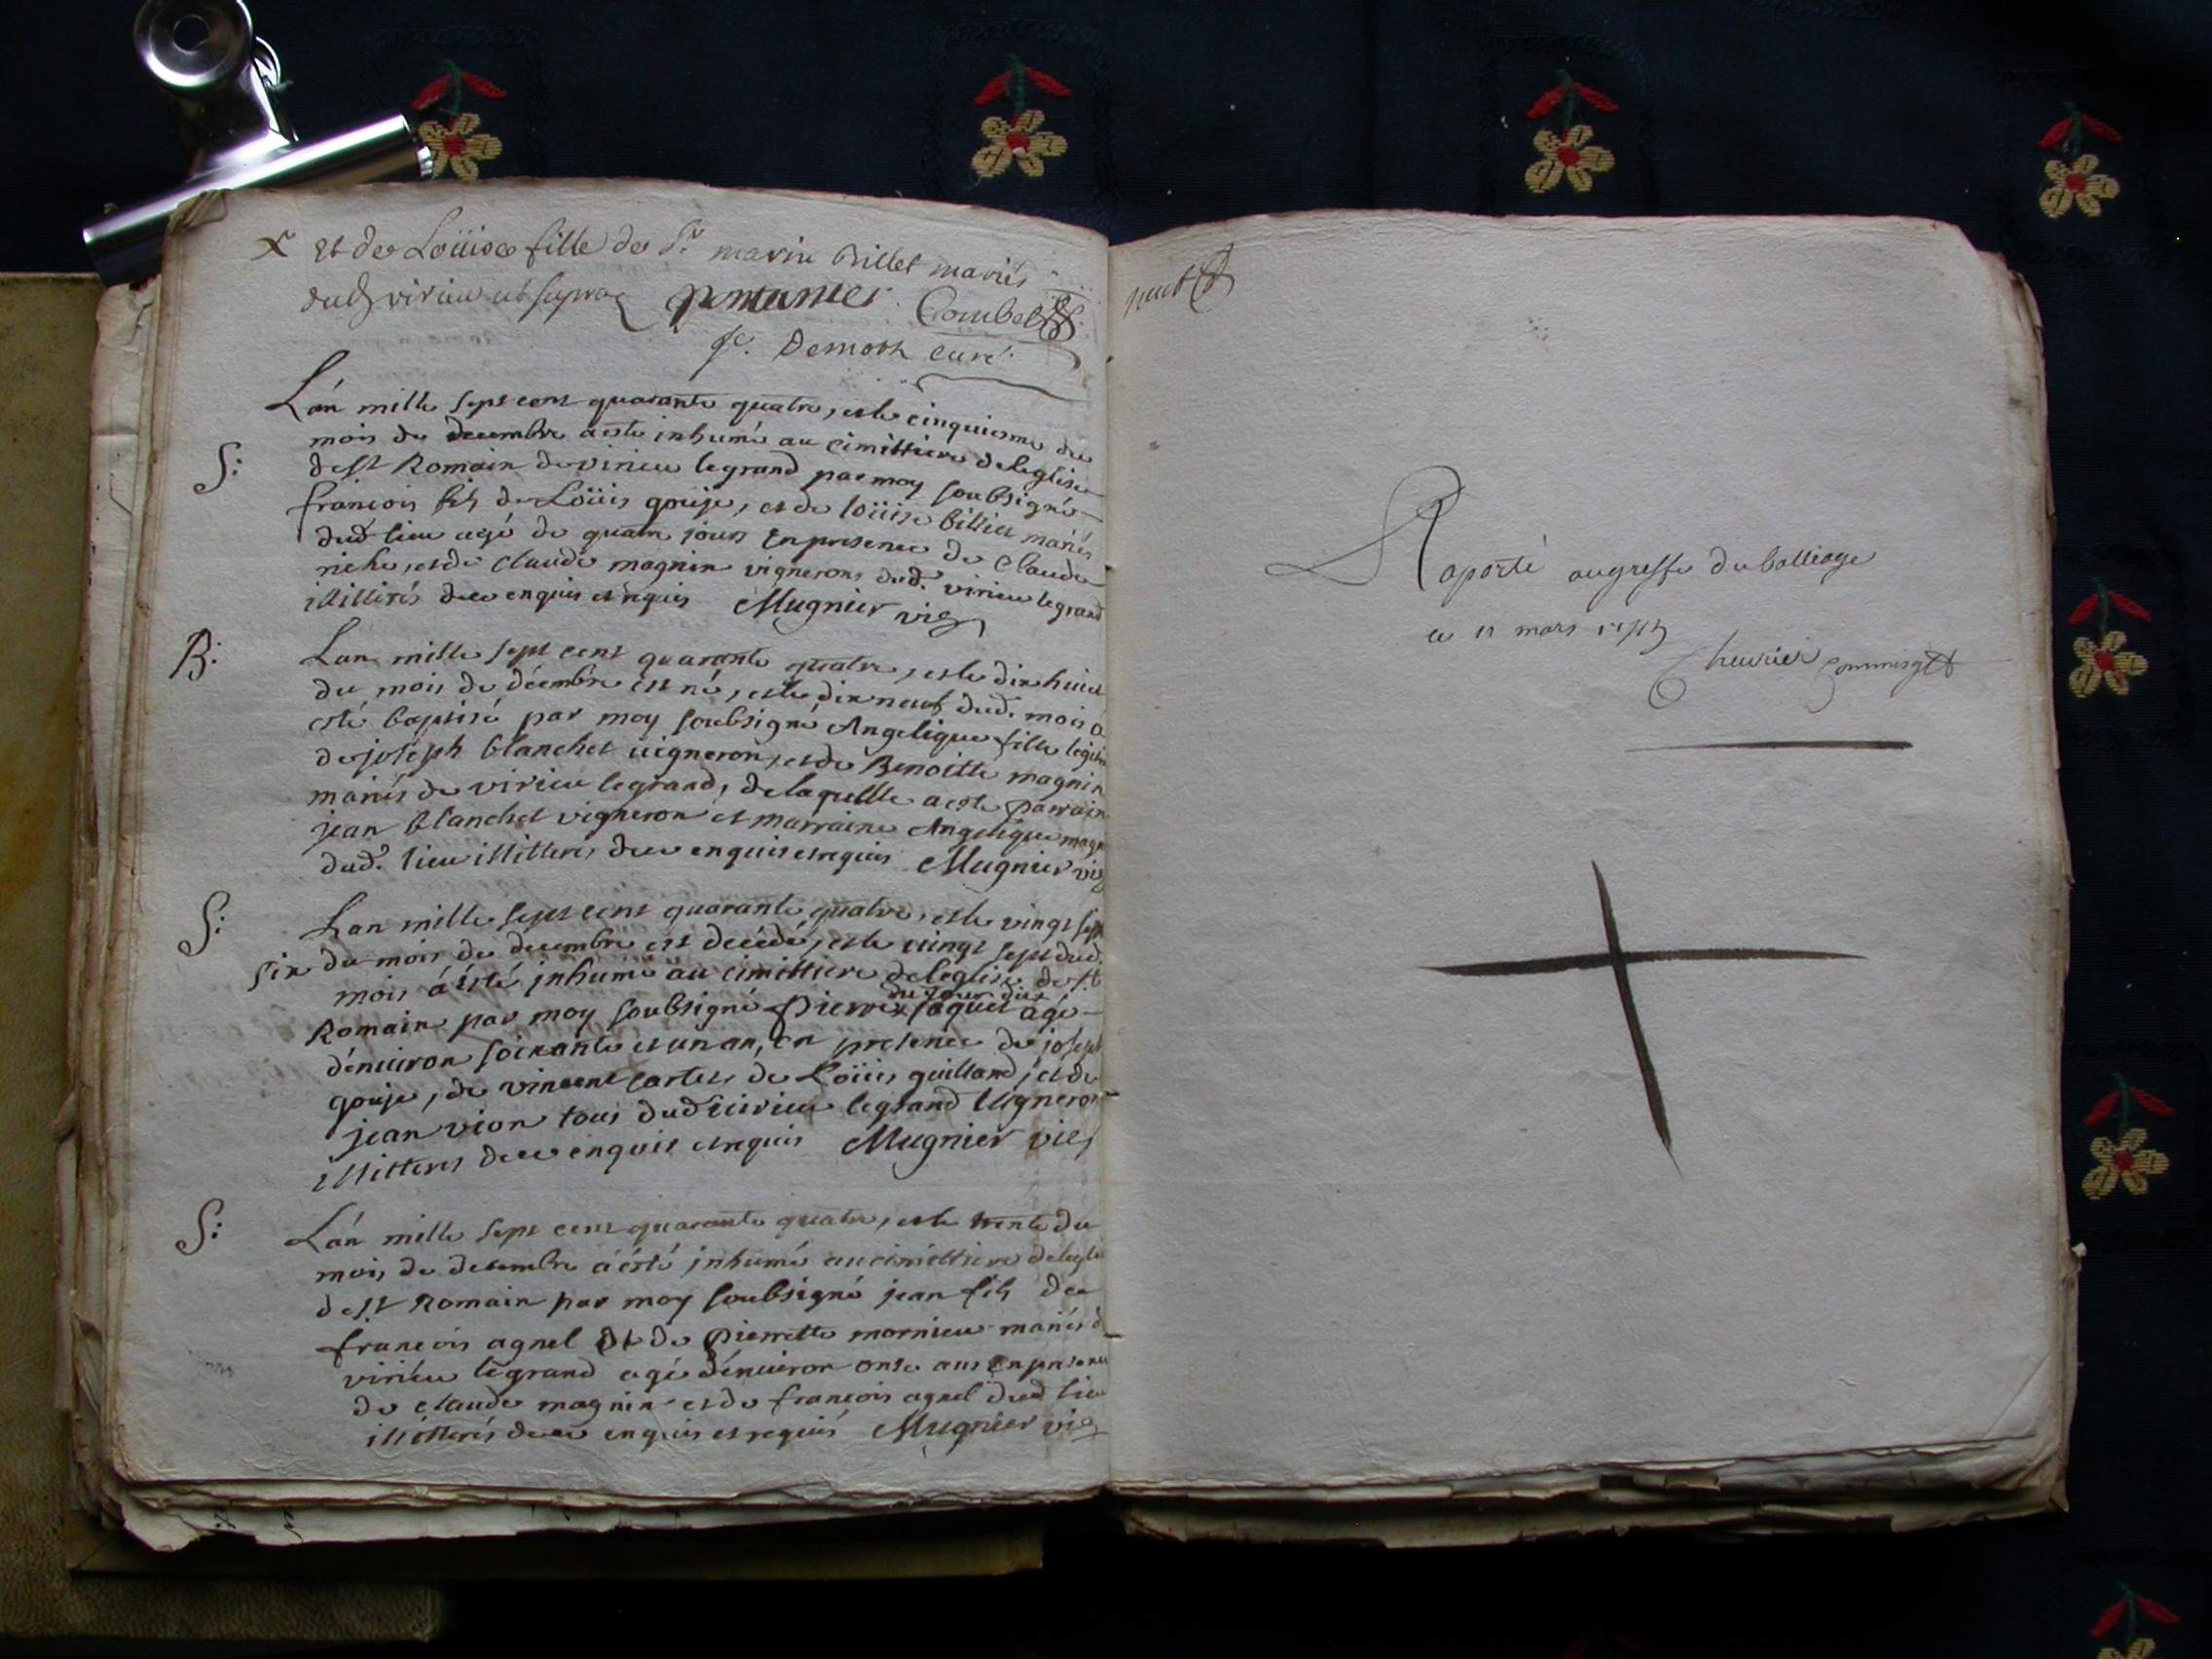 x et de Loüise fille de Sr. marin Billet mariés
dud virieu ut supra Combet
Demoth curé
Lán mille sept cent quarante quatre, et le cinquiesme du
mois de decembre a esté inhumé au cimittiere deleglise
S: de St Romain de virieu le grand par moy soubsigné
francois fils de Loüis gouje, et de loüise billiet mariés
dud lieu agé de quatre jours En presence de Claude
riche, et de claude magnin vignerons dud. virieu le grand
illitterés de ce enquis et requis Mugnier vic
B: Lan mille sept cent quarante quatre, et le dix huict
du mois de décembre est né, et le dix neuf dud. mois a
esté baptisé par moy soubsigné Angelique fille legiti
de joseph blanchet uigneron, et de Benoitte magnin
mariés de virieu le grand, de laquellle a esté parrain
jean blanchet vigneron et marraine Angelique magn
dud. lieu illitterés de ce enquis et requis Mugnier vic
S: Lan mille sept cent quarante quatre, et le vingt sept
six du mois de decembre est decédé, et le uingt sept dud.
mois á ésté inhumé au cimittiere de leglise de St
Romain par moy soubsigné Pierre x jaquet agé
dénuiron soixante et un an, en presence de joseph
gouje, de vincent sartet, de Loüis guilland, et de
jean vion tous dud uirieu le grand Uigneron
illitterés de ce enquis et requis Mugnier vic
S: Lán mille sept cent quarante quatre, et le trente du
mois de decembre á ésté inhumé au cimittiere de legli
de St Romain par moy soubsigné jean fils de
francois agnel Et de Pierrette mornieu mariés d
virieu le grand agé dénuiron onse ans En presence
de claude magnin et de francois agnel dud lieu
illitterés de ce enquis et requis Mugnier vic
neuf
Raporté au greffe du balliage
le 11 mars
Cheurier commis gr